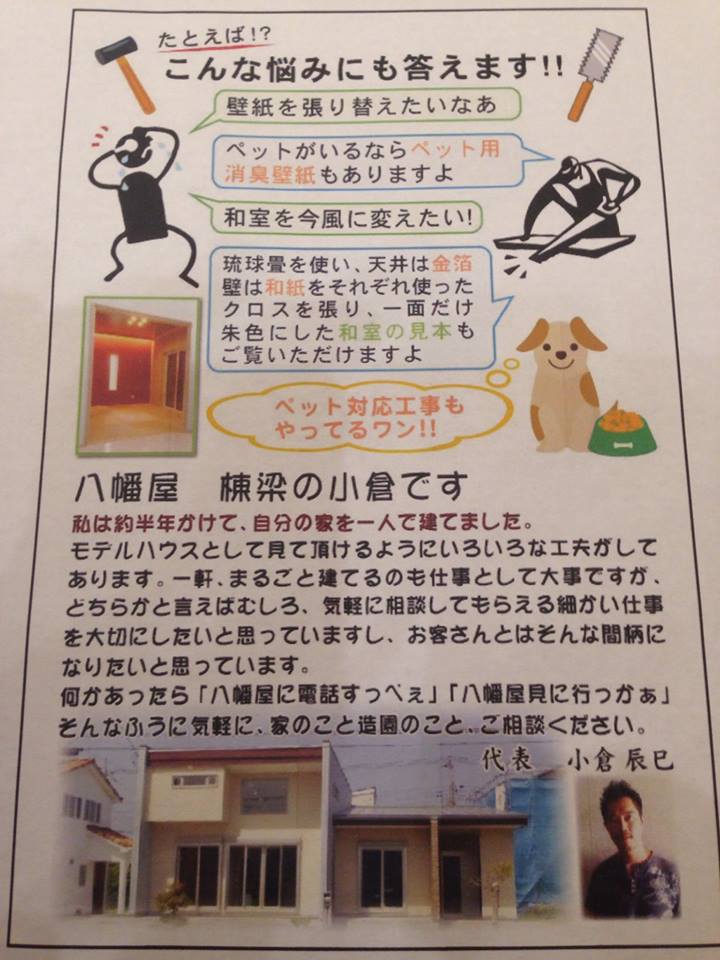 たとえば!?
こんな悩みにも答えます!!
壁紙を張り替えたいなあ
ペットがいるならペット用
消臭壁紙もありますよ
和室を今風に変えたい!
琉球畳を使い、天井は金箔
壁は和紙をそれぞれ使った
クロスを張り、一面だけ
朱色にした和室の見本も
ご覧いただけますよ
ペット対応工事も
やってるワン!!
八幡屋 棟梁の小倉です
私は約半年かけて、自分の家を一人で建てました。
モデルハウスとして見て頂けるようにいろいろな工夫がして
あります。一軒、まるごと建てるのも仕事として大事ですが、
どちらかと言えばむしろ、気軽に相談してもらえる細かい仕事
を大切にしたいと思っていますし、お客さんとはそんな間柄に
なりたいと思っています。
何かあったら「八幡屋に電話すっぺぇ」「八幡屋見に行っかぁ」
そんなふうに気軽に、家のこと造園のこと、ご相談ください。
代表 小倉辰巳